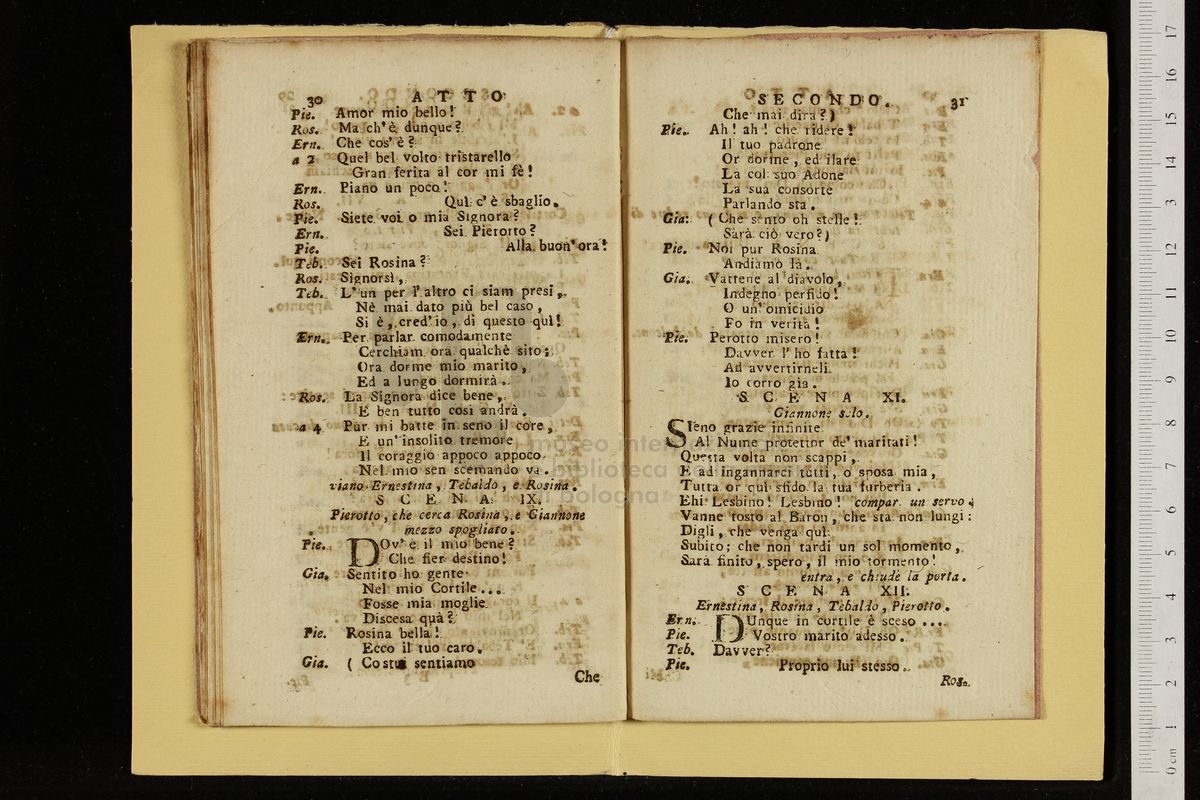 30 ATTO
Pie. Amor mio bello!
Ros. Ma ch'è, dunque?
Ern. Che cos'è?
a 2 Quel bel volto tristarello
Gran ferita al cor mi fè!
Ern. Piano un poco!
Ros. Quì c'è sbaglio.
Pie. Siete voi o mia Signora?
Ern. Sei Pierotto?
Pie. Alla buon'ora!
Teb. Sei Rosina?
Ros. Signorsì,
Teb. L'un per l'altro ci siam presi,
Nè mai dato più bel caso,
Si è, cred'io, di questo quì!
Ern. Per parlar comodamente
Cerchiam ora qualchè sito;
Ora dorme mio marito,
Ed a lungo dormirà.
Ros. La Signora dice bene,
E ben tutto così andrà.
a 4 Pur mi batte in seno il core,
E un'insolito tremore
Il coraggio appoco appoco
Nel mio sen scemando va.
viano Ernestina, Tebaldo, e Rosina.
SCENA IX.
Pierotto, che cerca Rosina, e Giannone
mezzo spogliato.
Pie. DOv'è il mio bene?
Che fier destino!
Gia. Sentito ho gente
Nel mio Cortile...
Fosse mia moglie
Discesa quà?
Pie. Rosina bella!
Ecco il tuo caro.
Gia. (Costui sentiamo
Che
SECONDO. 31
Che mai dirà?)
Pie. Ah! ah! che ridere!
Il tuo padrone
Or dorme, ed ilare
La col suo Adone
La sua consorte
Parlando sta.
Gia. (Che sento oh stelle!
Sarà ciò vero?)
Pie. Noi pur Rosina
Andiamo là.
Gia. Vattene al diavolo,
Indegno perfido!
O un'omicidio
Fo in verità!
Pie. Perotto misero!
Davver l'ho fatta!
Ad avvertirneli
Io corro gia.
SCENA XI.
Giannone solo.
SIeno grazie infinite
Al Nume protettor de' maritati!
Questa volta non scappi,
E ad ingannarci tutti, o sposa mia,
Tutta or quì sfido la tua furberia.
Ehi Lesbino! Lesbino! compar. un servo.
Vanne tosto al Baron, che sta non lungi:
Digli, che venga quì
Subito; che non tardi un sol momento,
Sara finito, spero, il mio tormento!
entra, e chiude la porta.
SCENA XII.
Ernestina, Rosina, Tebaldo, Pierotto.
Ern. DUnque in cortile è sceso....
Pie. Vostro marito adesso.
Teb. Davver?
Pie. Proprio lui stesso.
Ros.
museo inter
biblioteca
bologna
0 cm 1 2 3 4 5 6 7 8 9 10 11 12 13 14 15 16 17